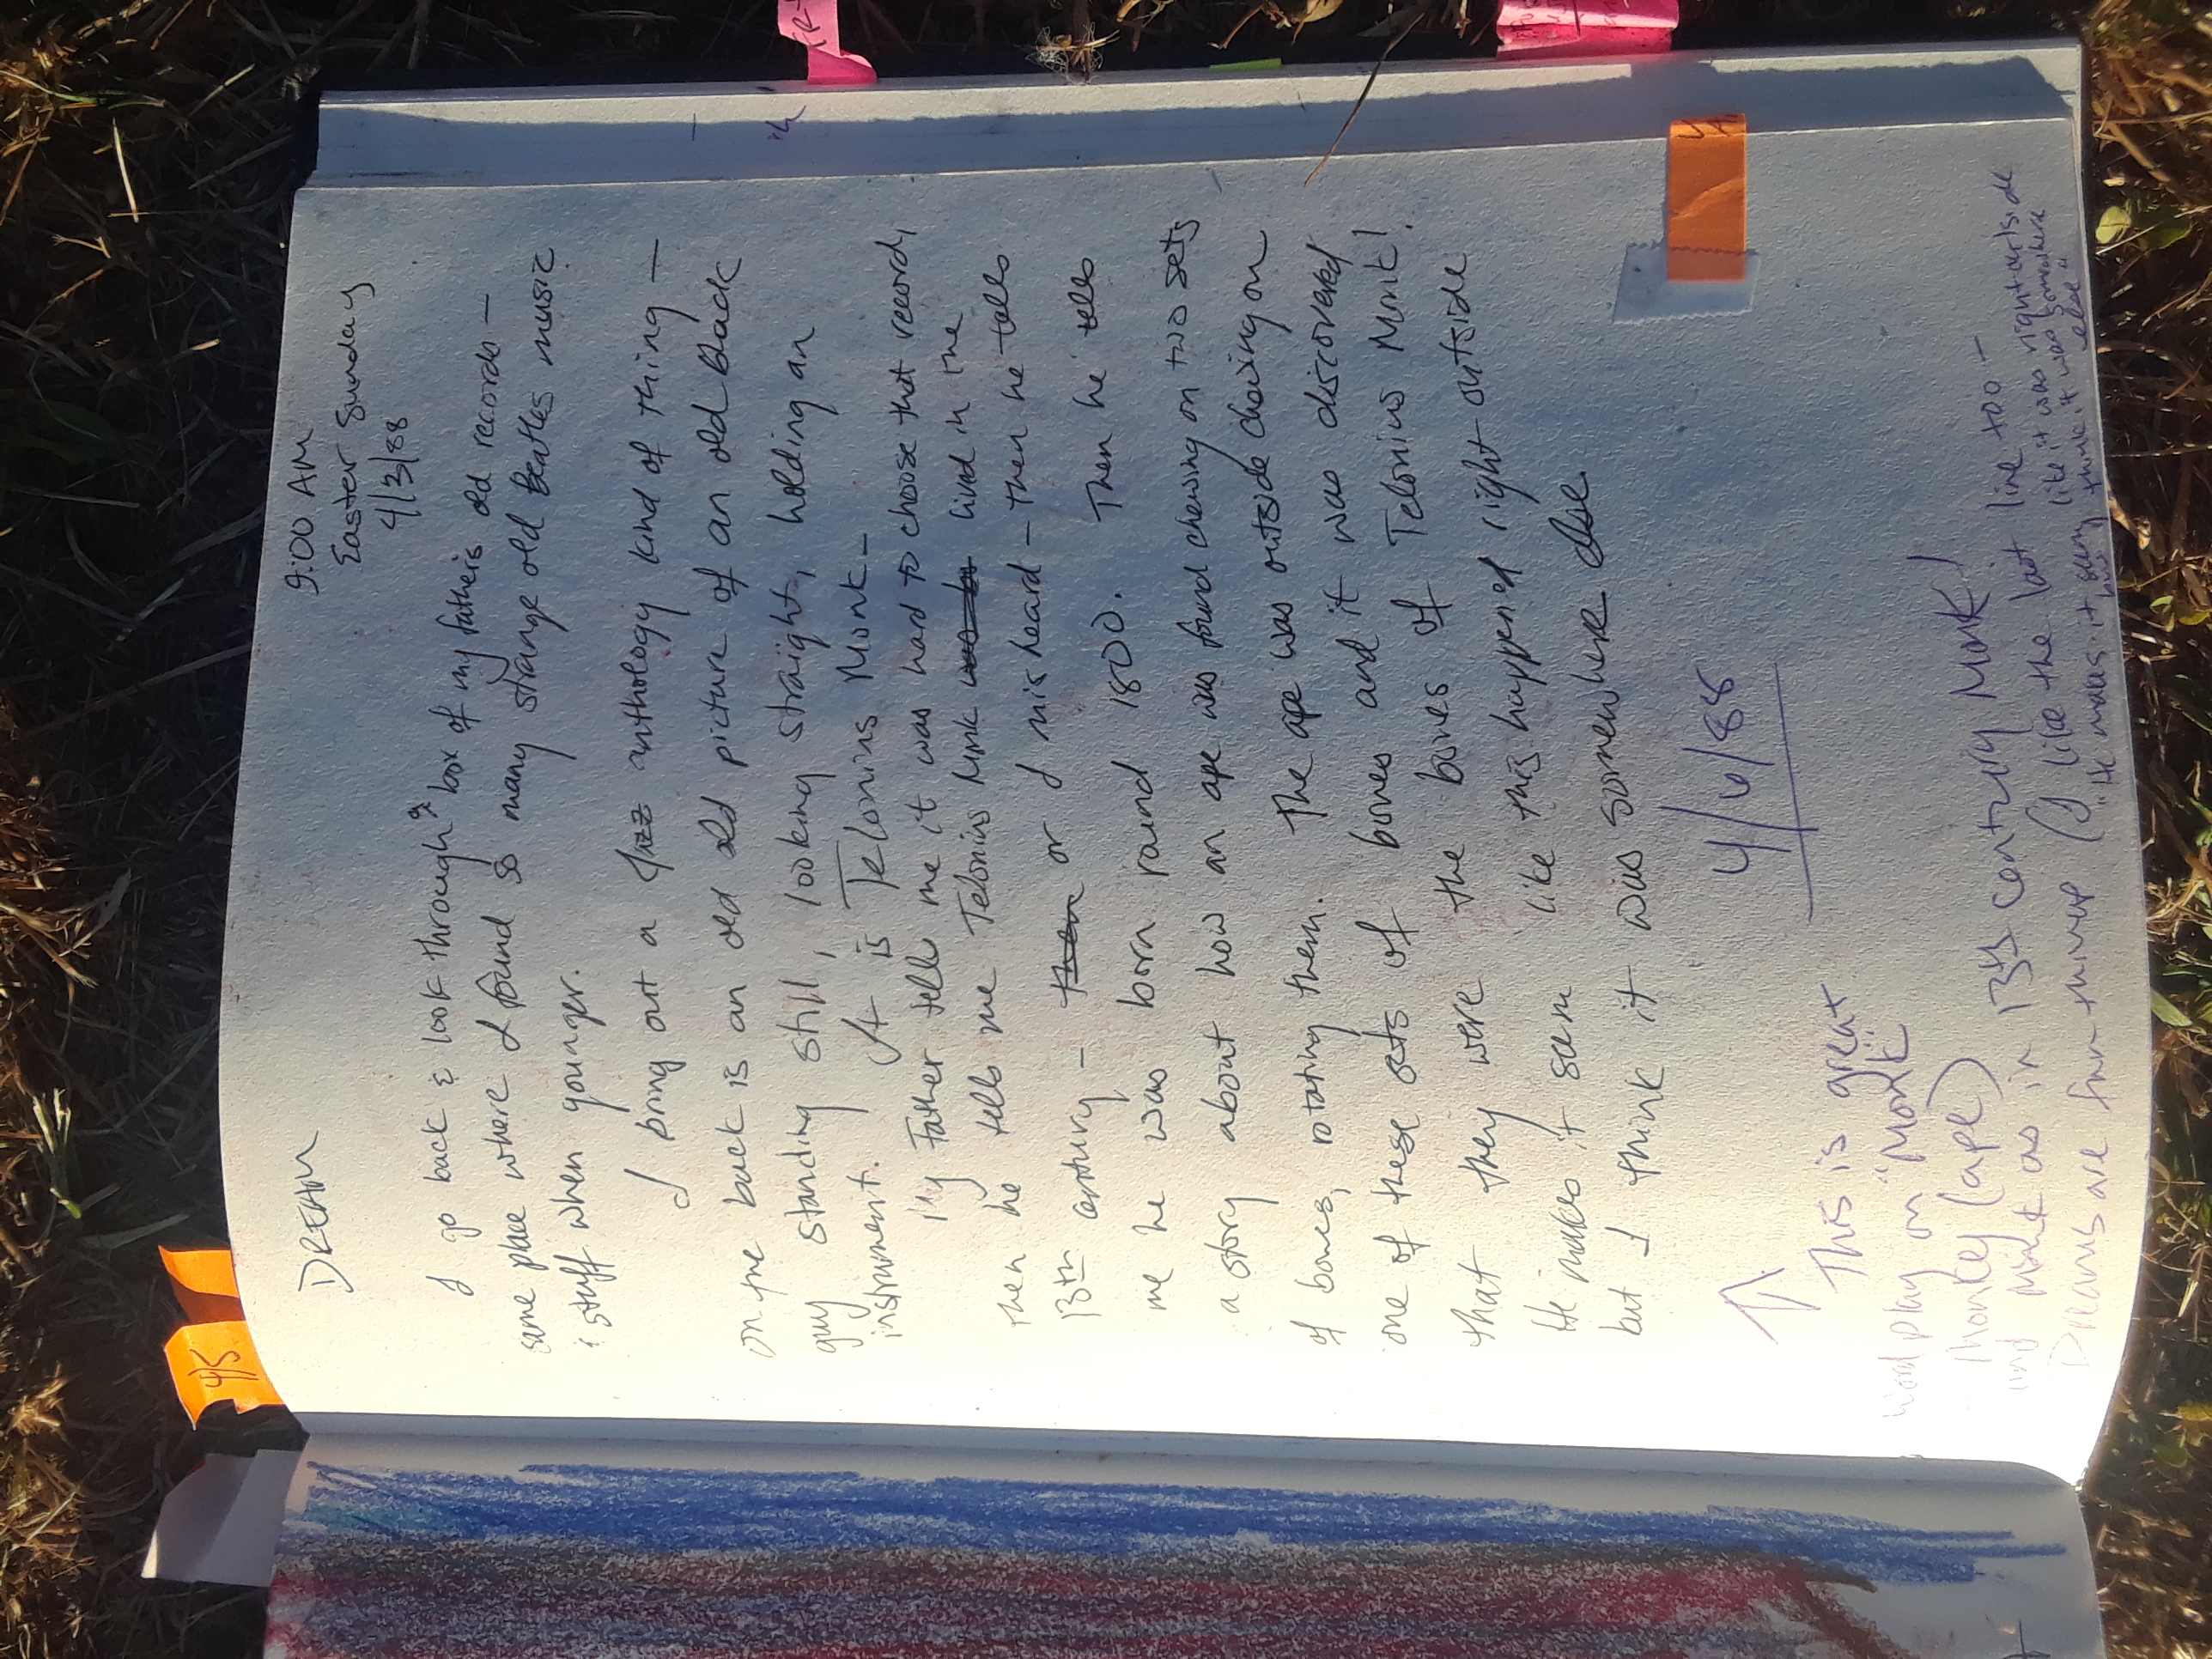 DREAM
9:00 AM
Easter Sunday
4/3/88
I go back & look through a box of my father's old records —
same place where I found so many strange old Beatles music
& stuff when younger.
I bring out a Jazz anthology kind of thing —
on the back is an old old picture of an old Black
guy standing still, looking straight, holding an
instrument. It is Telonius Monk —
My Father tells me it was hard to choose that record,
then he tells me Telonius Munk lived in the
13th century — or I misheard — then he tells
me he was born round 1800. Then he tells
a story about how an ape was found chewing on two sets
of bones, rotating them. The ape was outside chewing on
one of these sets of bones and it was discovered
that they were the bones of Telonius Monk!
He makes it seem like this happened right outside
but I think it was somewhere else.
4/6/88
This is great
word play on "Monk"
Monkey (ape)
and monk as in 13th century Monk!
Dreams are fun things (I like the last line too —
"He makes it seem like it was right outside
but I think it was somewhere
else"
4/5